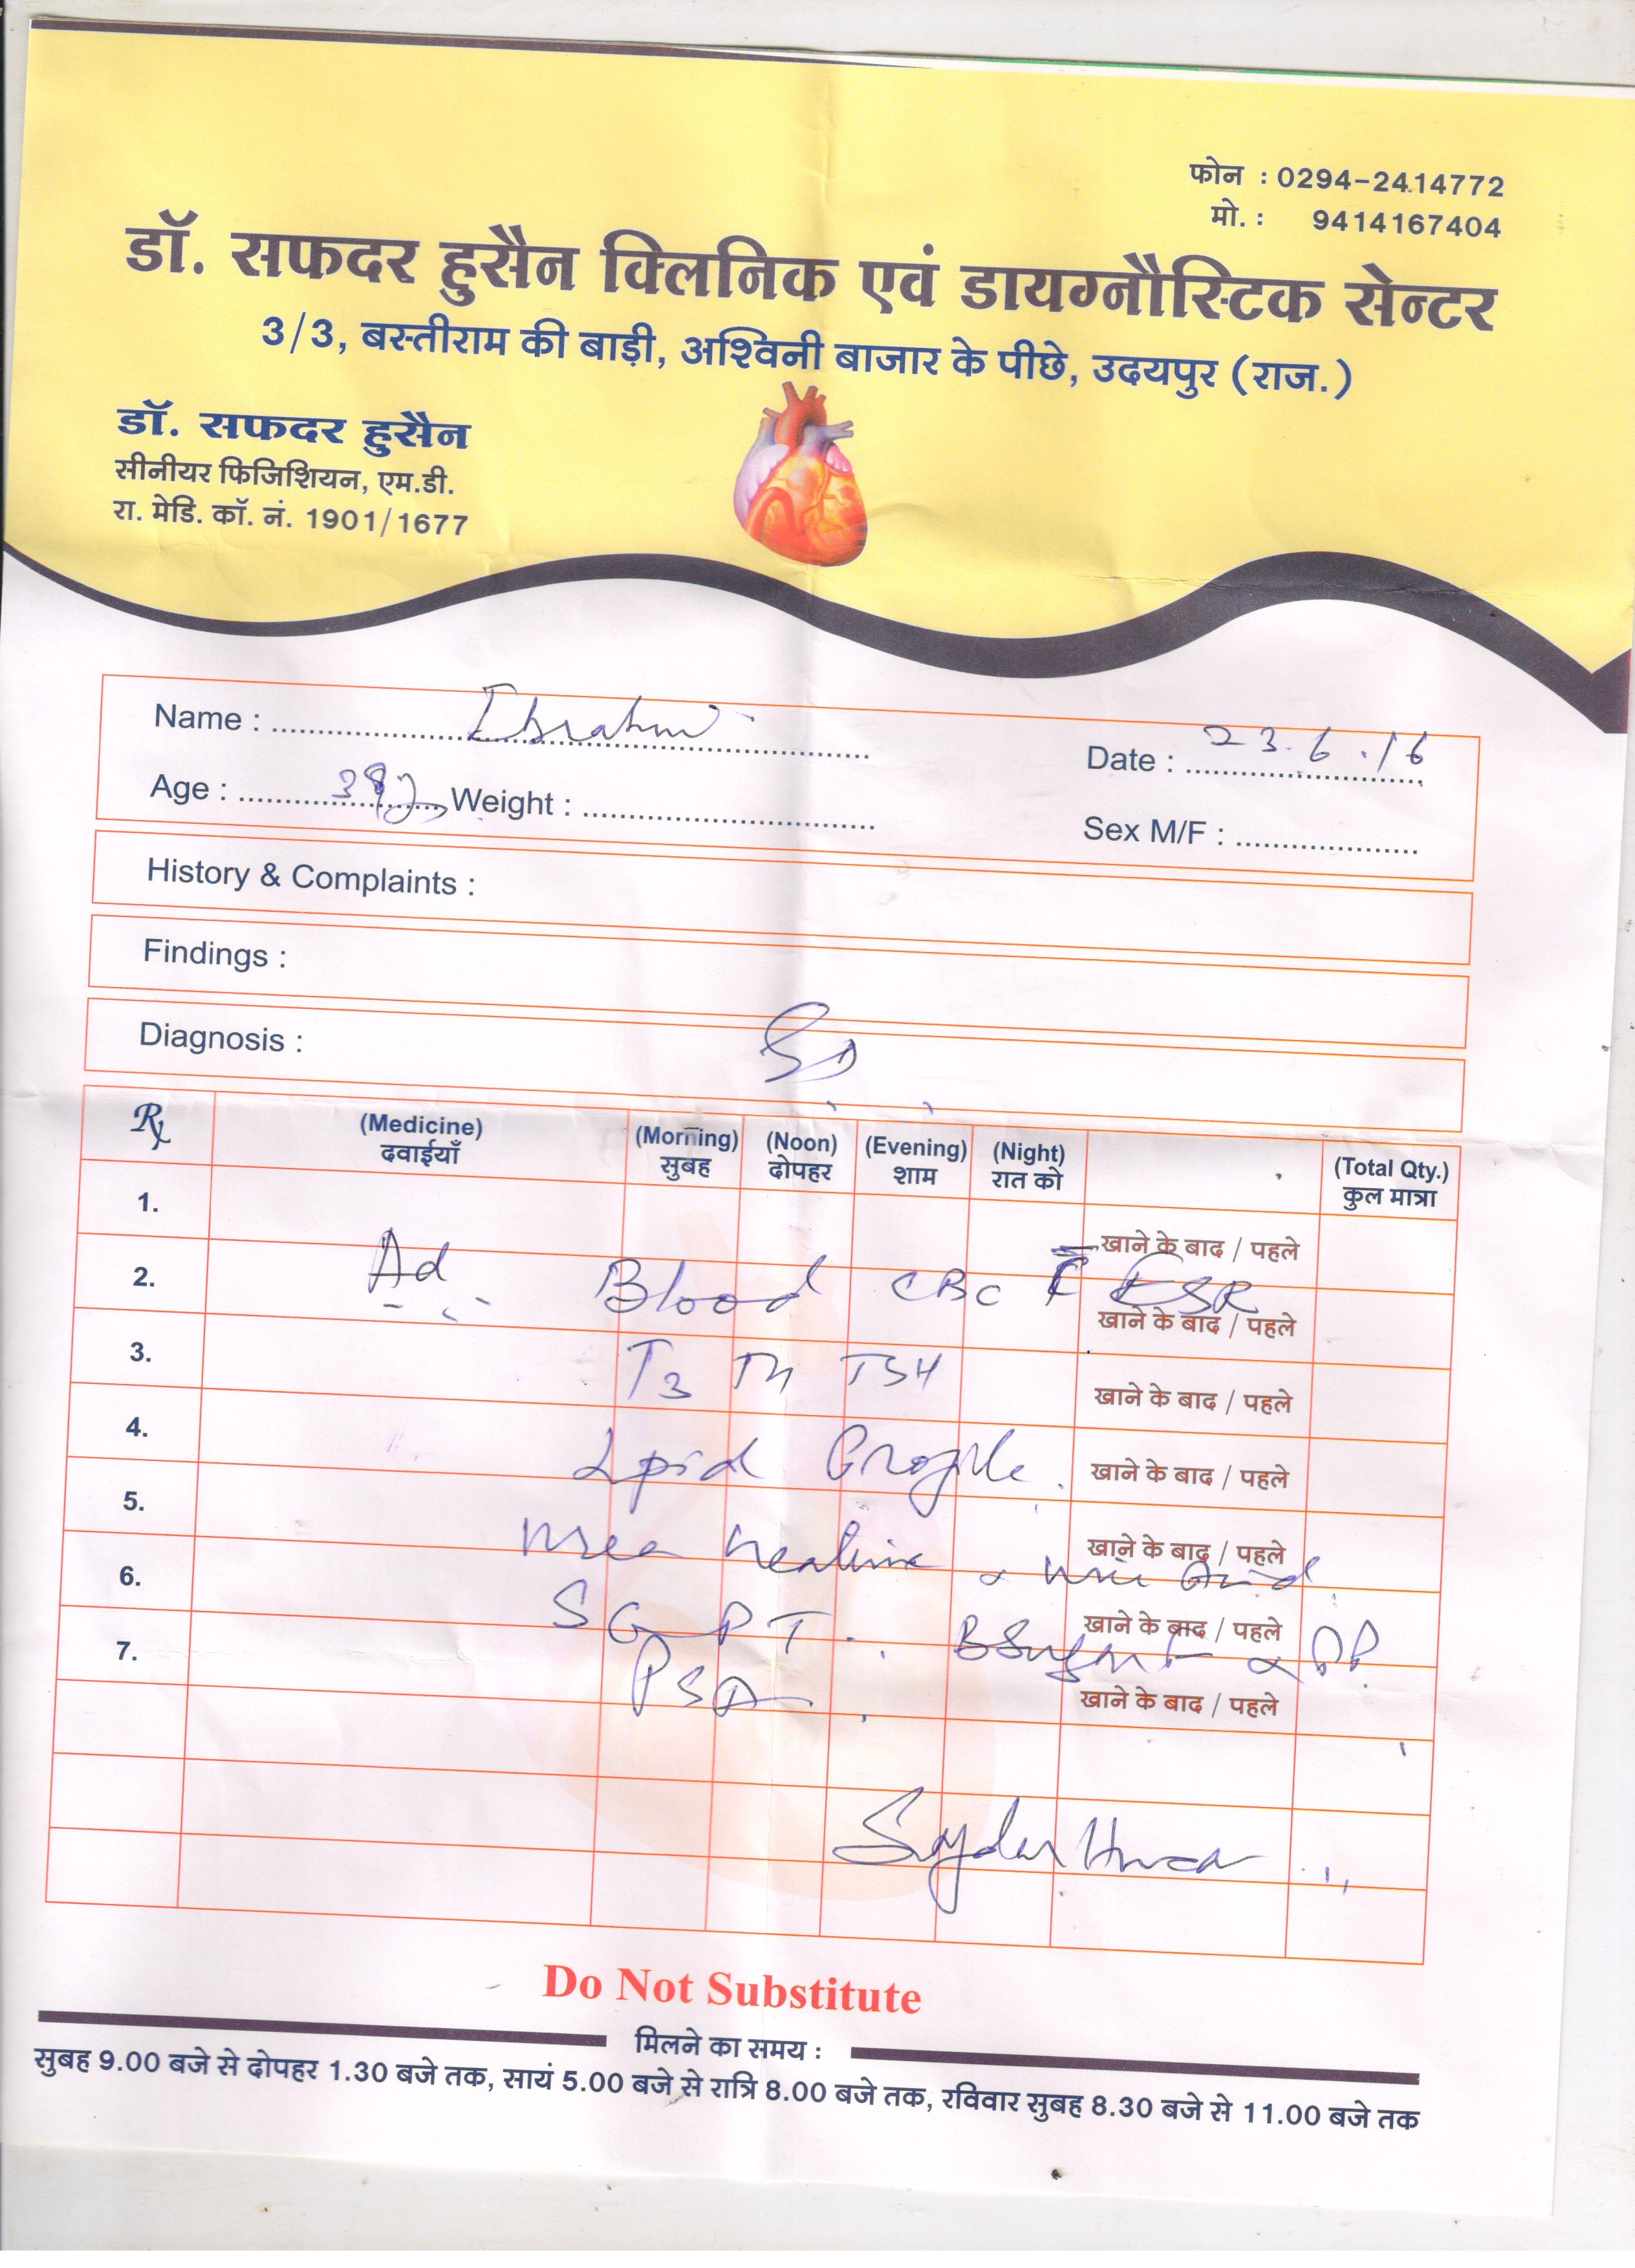 फोन : 0294-2414772
मो. : 9414167404
डॉ. सफदर हुसैन क्लिनिक एवं डायग्नौस्टिक सेन्टर
3/3, बस्तीराम की बाड़ी, अश्विनी बाजार के पीछे, उदयपुर (राज.)
डॉ. सफदर हुसैन
सीनीयर फिजिशियन, एम.डी.
रा. मेडि. कॉ. नं. 1901/1677
Name : Ibrahim
Date : 23.6.16
Age : Weight :
Sex M/F :
History & Complaints :
Findings :
Diagnosis :
Rx (Medicine) (Morning) (Noon) (Evening) (Night) (Total Qty.)
दवाईयाँ सुबह दोपहर शाम रात को कुल मात्रा
1. खाने के बाद / पहले
2. Ad Blood CBC ESR
खाने के बाद / पहले
3. T3 T4 TSH
खाने के बाद / पहले
4. Lipid Profile
खाने के बाद / पहले
5. खाने के बाद / पहले
Urea Creatinine & Uric Acid
6. SGPT खाने के बाद / पहले
BSugar F & PP
7. PSA
खाने के बाद / पहले
Do Not Substitute
मिलने का समय :
सुबह 9.00 बजे से दोपहर 1.30 बजे तक, सायं 5.00 बजे से रात्रि 8.00 बजे तक, रविवार सुबह 8.30 बजे से 11.00 बजे तक